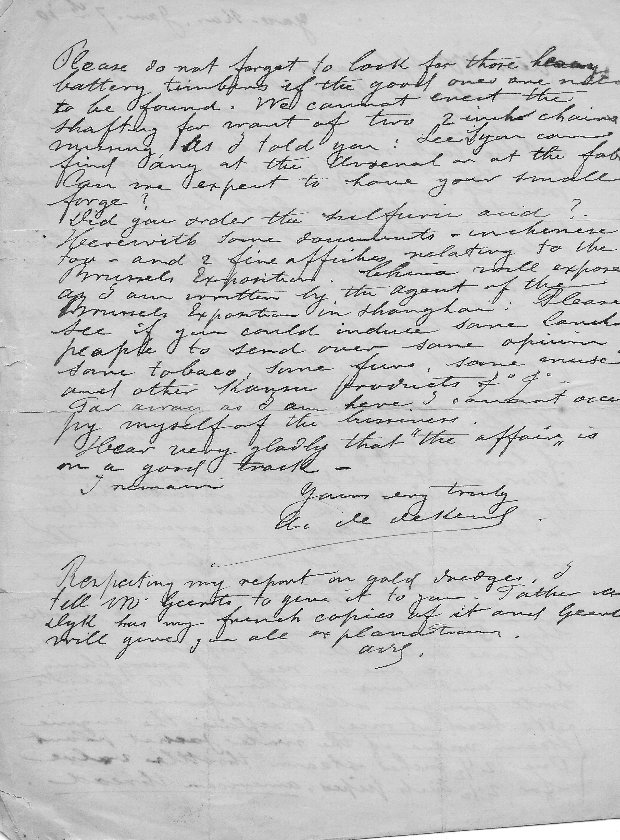 Please do not forget to look for those heavy
battery timbers if the good ones are not
to be found. We cannot erect the
shafting for want of two 2 inch chains
missing as I told you! See if you can
find any at the Arsenal or at the fab
Can we expect to have your small
forge?
Did you order the sulfuric acid?
Herewith some documents - in chinese
too - and 2 fine affiches relating to the
Brussels Exposition. China will expose
as I am written by the agent of the
Brussels Exposition in Shanghai. Please
see if you could induce some Lanch
people to send over some opium
some tobaco, some furs, some muse
and other Kansu products
Far away as I am here I cannot occu
py myself of the business.
Hear very gladly that "the affair" is
on a good track -
I remain
Yours very truly
A. de Dekens
Respecting my report on gold dredges, I
tell Mr Geerts to give it to you. Father
Dyk has my french copies of it and Geert
will give you all explanations.